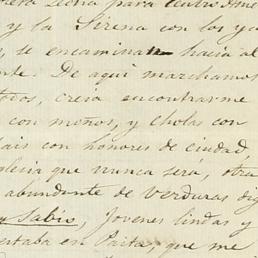 para
y la Sirena con los
se encaminan hacia al
nte. De aqui marchamos
todos, creia encontrarme
con moños, y cholas con
ais con honores de ciudad
que nunca será, otra
abundante de verduras dig
y Sabio, Jovenes lindas y
entaba en Paita, que me